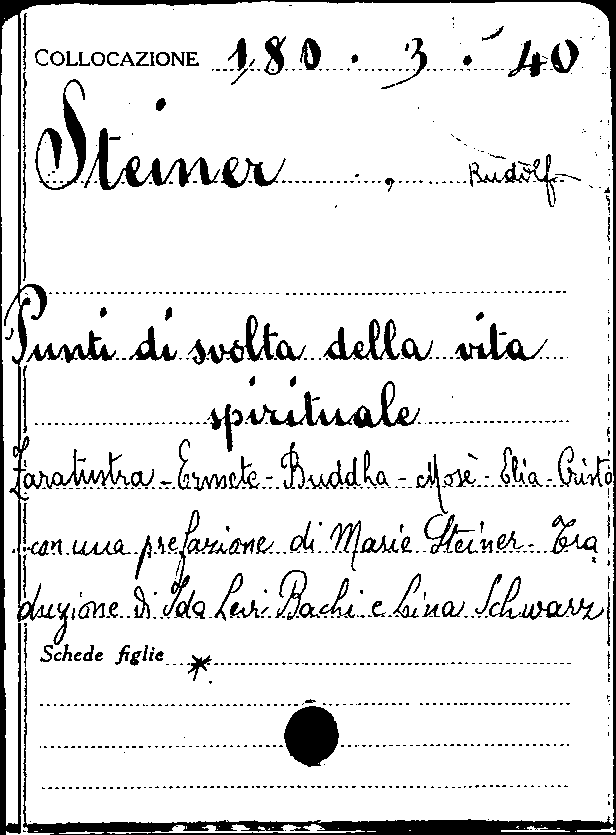 COLLOCAZIONE 180 . 3 . 40
Steiner , Rudolf
Punti di svolta della vita
spirituale
Zaratustra - Ermete - Buddha - Mosè - Elia - Cristo
con una prefazione di Marie Steiner - Tra
duzione di Ida Levi Bachi e Lina Schwarz
Schede figlie *